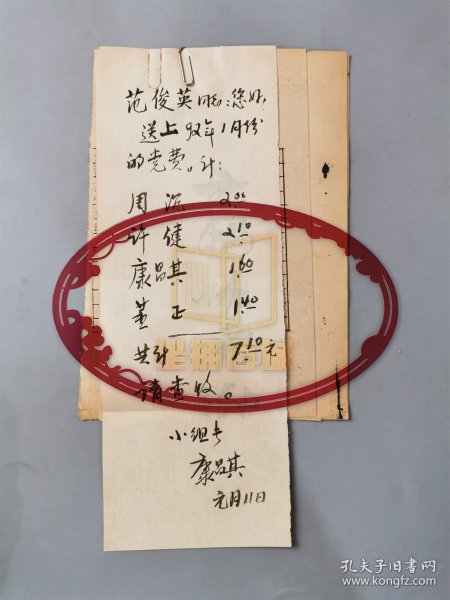 范俊英同志:您好
送上92年1月份
的党费。计:
周沉 2.00
许健 2.10
康昌其 1.60
董正 1.40
共计 7.10元
请查收。
小组长
康昌其
元月11日
孔夫子旧书网
www.kongfz.com